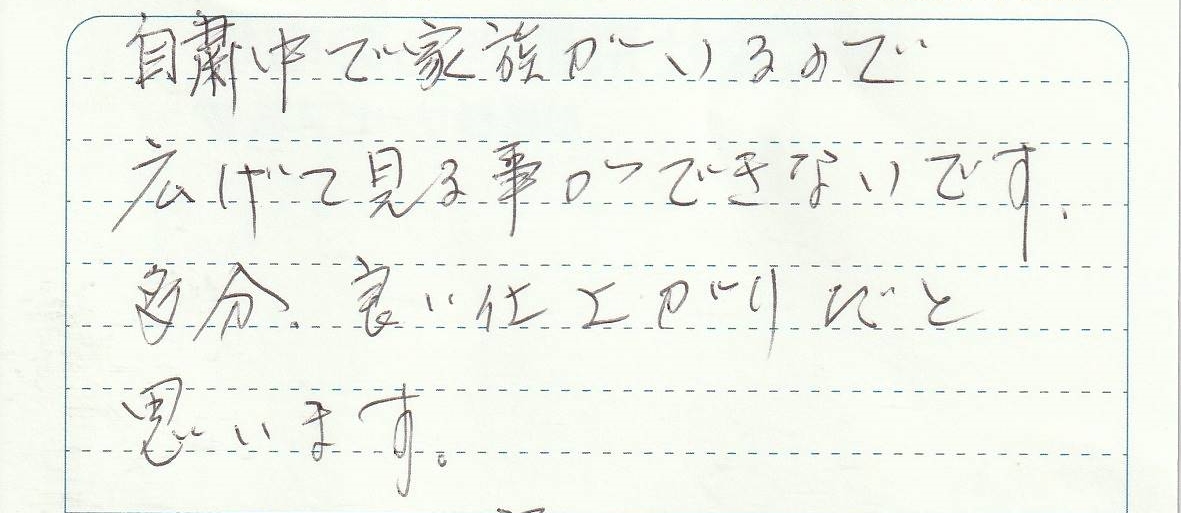 自粛中で家族がいるので
広げて見る事ができないです.
多分.良い仕上がりだと
思います。